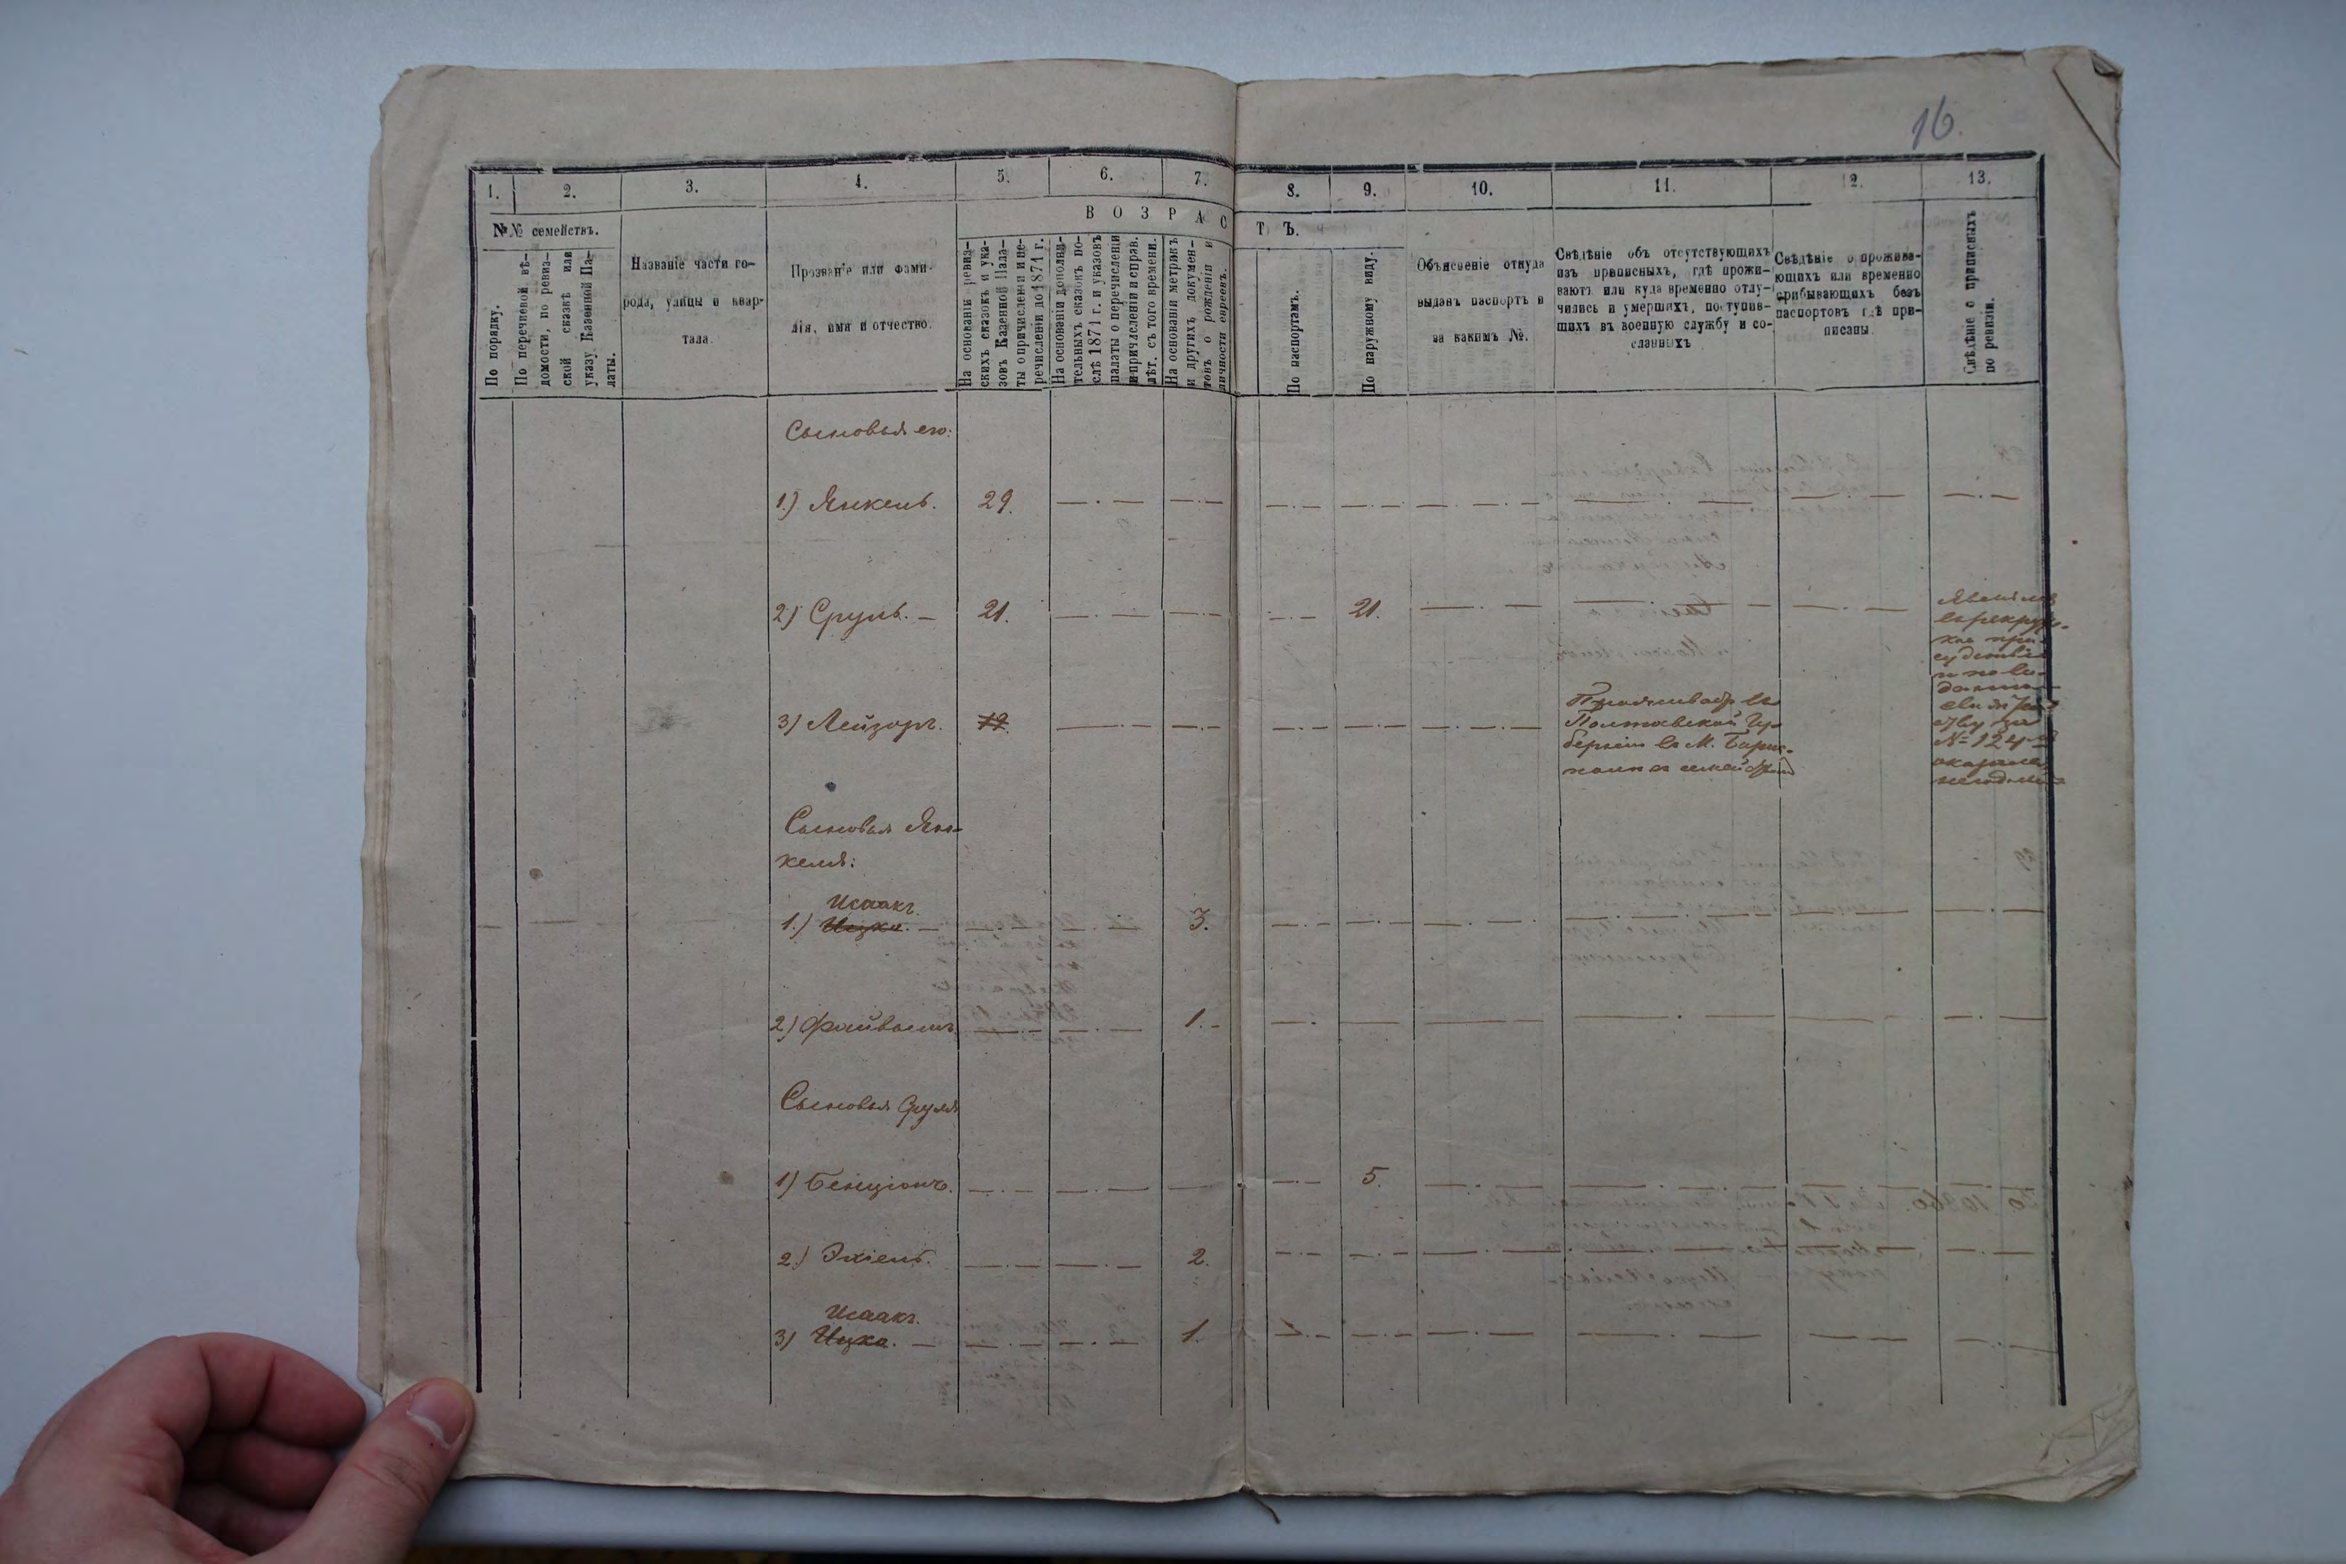 16.
1. 2. 3. 4. 5. 6. 7. 8. 9. 10. 11. 12. 13.
№№ семействъ.
По порядку.
По перечневой вѣ-
домости, по ревиз-
ской сказкѣ или
указу Казенной Па-
латы.
Названіе части го-
рода, улицы и квар-
тала.
Прозваніе или фами-
лія, имя и отчество.
ВОЗРАСТЪ.
На основаніи ревиз-
скихъ сказокъ и ука-
зовъ Казенной Пала-
ты о причисленіи и пе-
речисленіи до 1871 г.
На основаніи дополни-
тельныхъ сказокъ по-
слѣ 1871 г. и указовъ
палаты о перечисленіи
и причисленіи и справ.
лѣт. съ того времени.
На основаніи метрикъ
и другихъ докумен-
товъ о рожденіи и
личности евреевъ.
По паспортамъ.
По наружному виду.
Объясненіе откуда
выданъ паспортъ и
за какимъ №.
Свѣдѣніе объ отсутствующихъ
изъ приписныхъ, гдѣ прожи-
ваютъ или куда временно отлу-
чились и умершихъ, поступив-
шихъ въ военную службу и со-
сланныхъ
Свѣдѣніе о прожива-
ющихъ или временно
прибывающихъ безъ
паспортовъ гдѣ при-
писаны.
Свѣдѣніе о приписныхъ
по ревизіи.
Сыновья его:
1.) Янкель. 29.
2) Сруль. — 21. 21.
3) Лейзоръ. 19.
Проживаетъ въ
Полтавской Гу-
берніи въ М. Барыш-
поли съ семействомъ
присудствіи
№ 124
оказался
Сыновья Ян-
келя:
Исаакъ.
1.) Ицко. — 3.
2) Файвышъ 1. -
Сыновья Сруля
1) Бенціонъ. 5.
2.) Эхіель. 2.
Исаакъ.
3) Ицко. — 1.